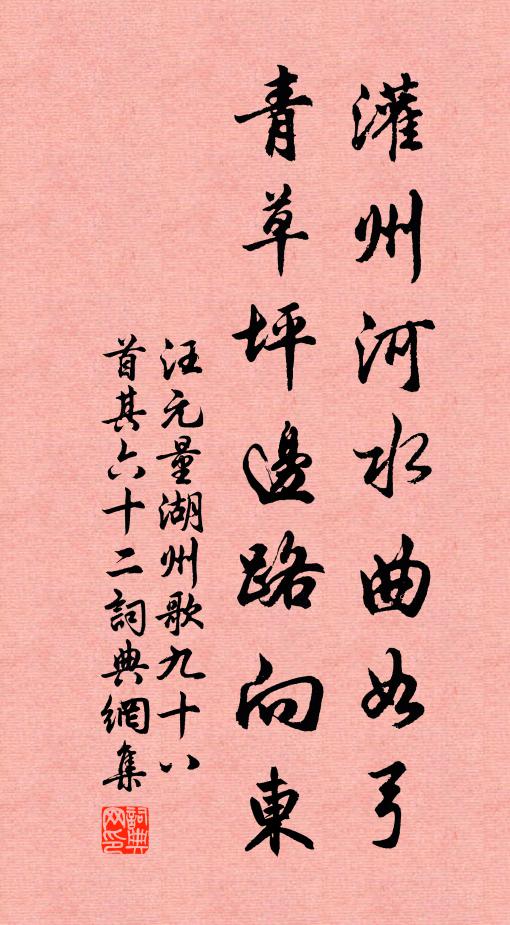 灌州河水曲如弓
青草坪邊路向東
汪元量湖州歌九十八
首其六十二詞典網集
詞典
网印